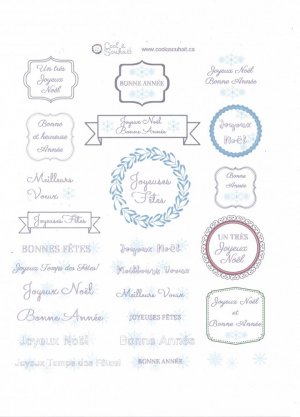 Cook & Souhait
www.cooksouhait.ca
Un très
Joyeux
Noël
BONNE ANNÉE
Joyeux Noël
Bonne Année
Bonne
et heureuse
Année
Joyeux Noël
Bonne Année
Joyeux
Noël
Meilleurs
Voeux
Joyeuses
Fêtes
Bonne
Année
Joyeuses Fêtes
BONNES FÊTES
Joyeux Noël
UN TRÈS
Joyeux
Noël
Joyeux Temps des Fêtes!
Meilleurs Voeux
Joyeux Noël
Meilleurs Voeux
Bonne Année
JOYEUSES FÊTES
Joyeux Noël
et
Bonne Année
Joyeux Noël
Bonne Année
Joyeux Temps des Fêtes!
BONNE ANNÉE